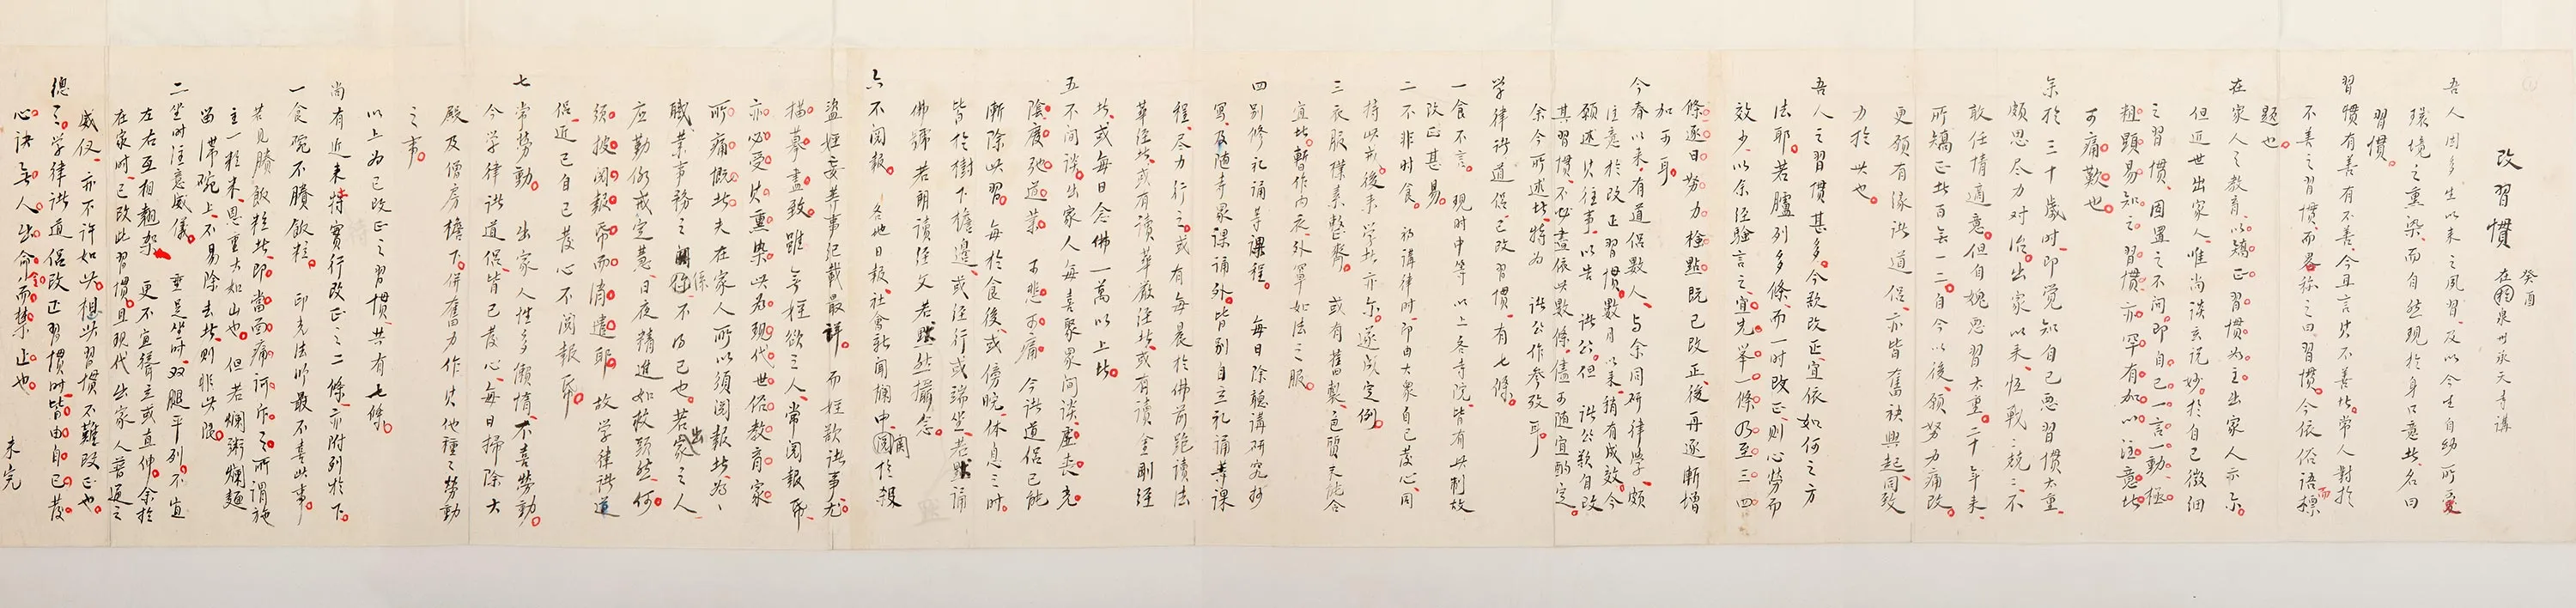 改習慣
癸酉
在泉州承天寺講
吾人因多生以來之夙習、及以今生自幼所受
環境之熏染、而自然現於身口者、名曰
習慣。
習慣有善有不善、今且言其不善者。常人對於
不善之習慣、而略稱之曰習慣。今依俗語而標
題也。
在家人之教育、以矯正習慣為主。出家人亦尔。
但近世出家人、唯尚談玄說妙。於自己微細
之習慣、固置之不問。即自己一言一動、極
粗顯易知之習慣、亦罕有加以注意者。
可痛歎也。
余於三十歲時、即覺知自己惡習慣太重、
頗思尽力對治。出家以来、恆戰戰兢兢、不
敢任情適意。但自愧惡習太重、二十年来、
所矯正者百無一二。自今以後、願努力痛改。
更願有緣諸道侶、亦皆奮袂興起、同致
力於此也。
吾人之習慣甚多。今欲改正、宜依如何之方
法耶。若臚列多條、而一時改正、則心勞而
效少。以余經驗言之、宜先举一條乃至三四
條、逐日努力檢點、既已改正、後再逐漸增
加可耳。
今春以来、有道侶數人、与余同研律學、頗
注意於改正習慣。數月以来、稍有成效、今
願述其往事、以告諸公。但諸公欲自改
其習慣、不必盡依此數條、儘可隨宜酌定。
余今所述者、特為諸公作参攷耳。
学律諸道侶、已改習慣、有七條。
一食不言。現时中等以上各寺院、皆有此制、故
改正甚易。
二不非时食。初講律时、即由大衆自己發心、同
持此戒。後来学者亦尔。遂成定例。
三衣服樸素整齊。或有舊製、色質未能合
宜者、暫作內衣、外罩如法之服。
四別修礼誦等課程。每日除聽講研究抄
寫、及随寺眾課誦外、皆別自立礼誦等課
程、尽力行之。或有每晨於佛前跪讀法
華經者、或有讀華嚴經者、或有讀金剛經
者、或每日念佛一萬以上者。
五不閒談。出家人每喜聚眾閒談、虛喪光
陰、廢弛道業、可悲可痛。今諸道侶、已能
漸除此習。每於食後、或傍晚、休息之時、
皆於樹下檐邊、或經行、或端坐、若默誦
佛號、若朗讀經文、若默然攝念。
六不閱報。各地日報、社會新聞欄中、關於殺
盜婬妄等事、記載最詳。而婬欲諸事、尤
描摹盡致。雖無婬欲之人、常閱報紙、
亦必受其熏染、此為現代世俗教育家
所痛慨者。夫在家人所以須閱報者、為
職業事務之關係、不得已也。若出家之人
應勤修戒定慧、日夜精進如救頭然、何
須披閱報帋而消遣耶。故学律諸道
侶、近已自己發心不閱報帋。
七常勞動。出家人性多懶惰、不喜勞動。
今学律諸道侶、皆已發心、每日掃除大
殿及僧房檐下、併奮力作其他種種勞動
之事。
以上為已改正之習慣、共有七條。
尚有近来特實行改正之二條、亦附列於下。
一食碗不賸飯粒。印光法师最不喜此事。
若見賸飯粒者、即當面痛訶斥之。所謂施
主一粒米、恩重大如山也。但若爛粥爛麵
留滞碗上、不易除去者、則非此限。
二坐时注意威儀。垂足坐时、双腿平列。不宜
左右互相翹架、更不宜聳立或直伸。余於
在家时、已改此習慣。且現代出家人普通之
威仪、亦不許如此。想此習慣不難改正也。
總之、学律諸道侶、改正習慣时、皆由自己發
心、決無人出命令而禁止也。
未完